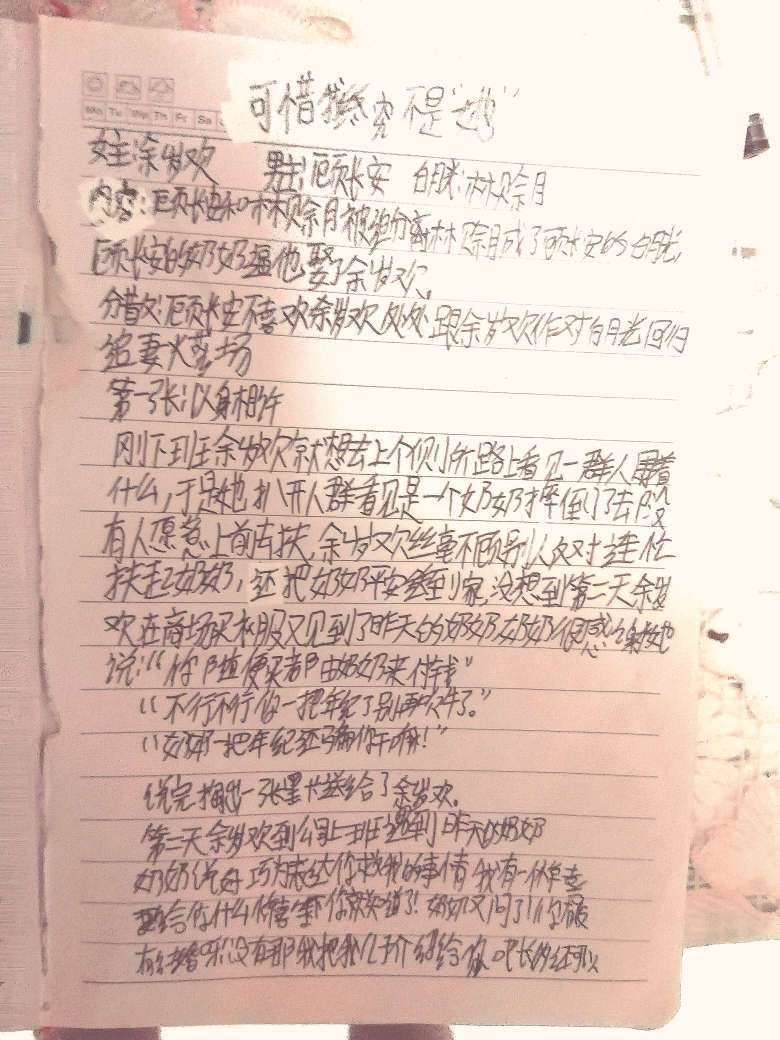 可惜我终究不是“她”
Mo Tu We Th Fr Sa
女主:余岁欢 男主:顾长安 白月光:林赊月
内容:顾长安和林赊月被迫分离林赊月成了顾长安的白月光,
顾长安的奶奶逼他娶了余岁欢,
顾长安不喜欢余岁欢处处跟余岁欢作对白月光回归
追妻火葬场
第一张:以身相许
刚下班余岁欢就想去上个厕所路上看见一群人围着
什么,于是她扒开人群看见是一个奶奶摔倒了去没
有人愿意上前去扶,余岁欢丝毫不顾别人反对连忙
扶起奶奶,还把奶奶平安送到家,没想到第二天余岁
欢在商场买衣服又见到了昨天的奶奶奶奶很感谢她
说:“你随便买都由奶奶来付钱”
“不行不行你一把年纪了别再吹牛了。”
“奶奶一把年纪还骗你干嘛!”
说完掏出一张黑卡送给了余岁欢。
第二天余岁欢到公司上班遇到昨天的奶奶
奶奶说好巧为表达你救我的事情我有一件喜
要给你什么你就知道了!奶奶又问了
有结婚呀没有那我把我儿子介绍给你吧长的还可以